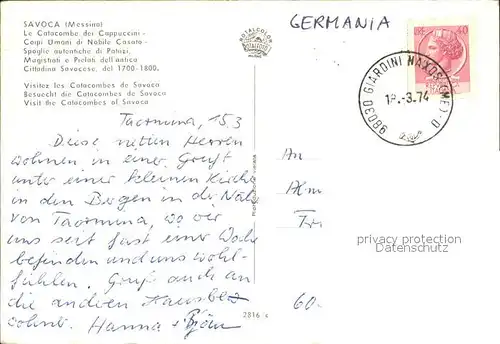 SAVOCA (Messina)
Le Catacombe dei Cappuccini -
Corpi Umani di Nobile Casato -
Spoglie autentiche di Patrizi,
Magistrati e Prelati dell'antica
Cittadina Savocese, del 1700-1800.
Visitez les Catacombes de Savoca
Besucht die Catacombes de Savoca
Visit the Catacombes of Savoca
ROTALCOLOR
GERMANIA
LIRE 40
98030 GIARDINI NAXOS (ME) - D
-3.74
Taormina, 15.3
Diese netten Herren
wohnen in einer Gruft
unter einer kleinen Kirche
in den Bergen in der Näh
von Taormina, wo wir
uns seit fast einer Woche
befinden und uns wohl-
fühlen. Gruß auch an
die andren Hausbe
wohner. Hanna + Björn
An
Fr
60.-
2816
privacy protection
VDMedien24.de